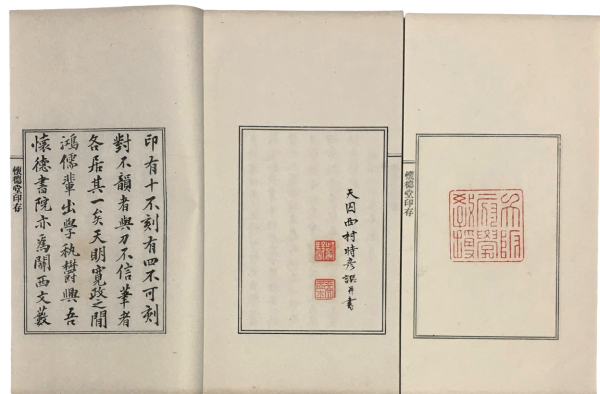 懷德堂印存
天囚西村時彦譔并書
印有十不刻有四不可刻
對不韻者與刀不信筆者
各居其一矣天明寛政之間
鴻儒輩出學執欝興吾
懷德書院亦爲關西文藪
懷德堂印存